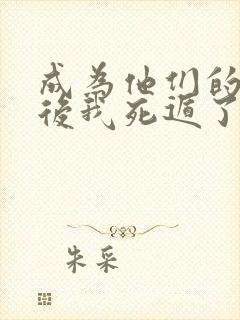 成為他们的
後我死遁了
朱采